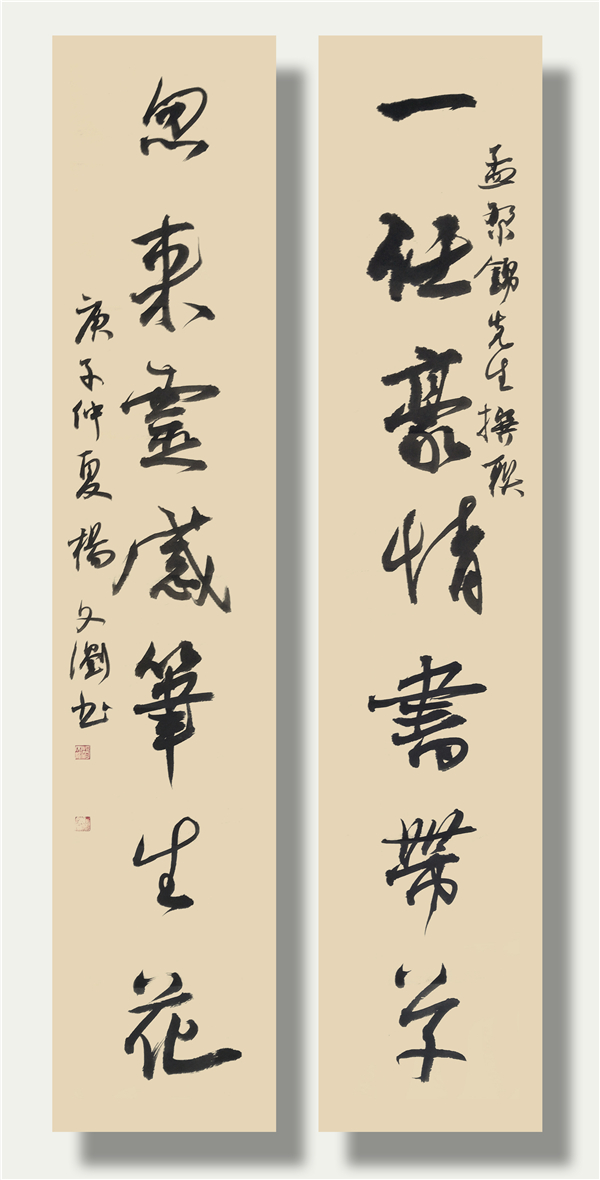 一任豪情書帶草
孟繁錦先生撰聯
忽來靈感筆生花
庚子仲夏楊文瀏書